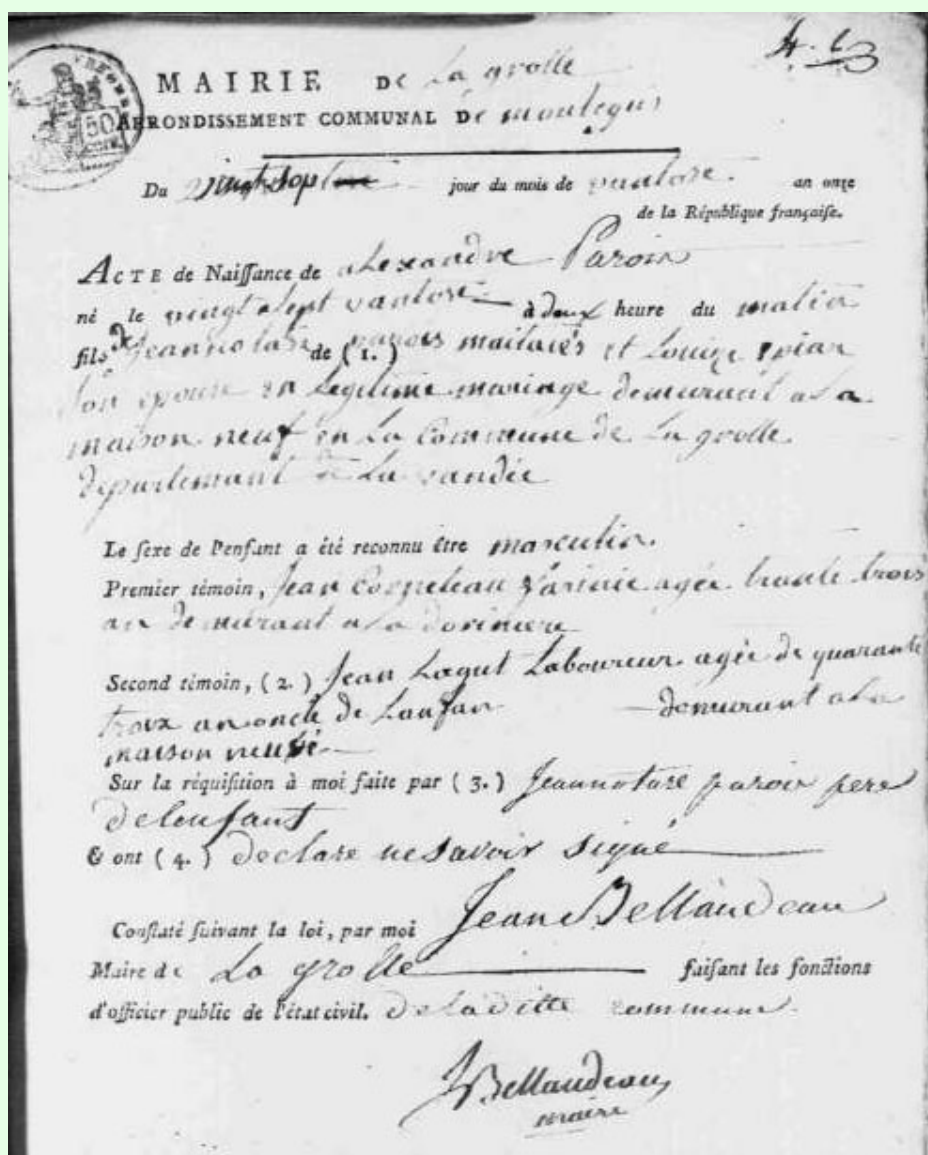 MAIRIE De La grolle
ARRONDISSEMENT COMMUNAL De montegus
50
Du vingt sept jour du mois de vantose an onze
de la République françaiſe.
ACTE de Naiſſance de alexandre Parois
né le vingt sept vantose à deux heure du matin
fils de Jean de (1.) parois et Louize
son epouse en Legitime mariage demurant a La
maison neuf en La Commune de La grolle
departemant de La vandée
Le ſexe de l'enfant a été reconnu être masculin.
Premier témoin, Jean agée trante trois
an demurant a La doriniere
Second témoin, (2.) Jean Laboureur agée de quarante
troix an oncle de Lanfan demurant a La
maison neuve
Sur la réquiſition à moi faite par (3.) parois pere
de lenfant
& ont (4.) declare ne savoir signé
Conſtaté ſuivant la loi, par moi Jean Bellaudeau
Maire de La grolle faiſant les fonctions
d'officier public de l'état civil. de la ditte commune
J Bellaudeau
maire